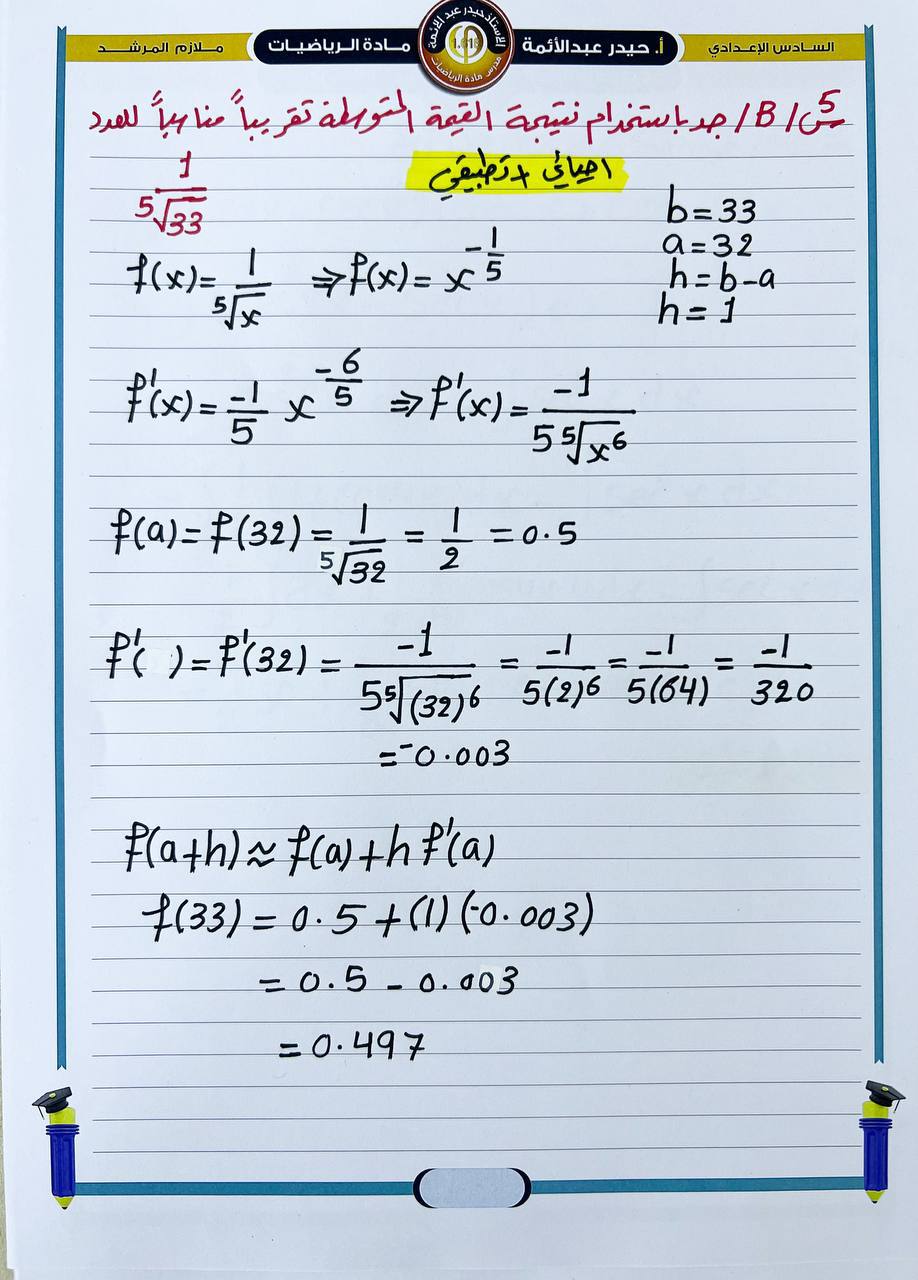 السادس الإعدادي أ. حيدر عبدالأئمة مادة الرياضيات ملازم المرشد
الاستاذ حيدر عبد الأئمة
1.618
φ
مدرس مادة الرياضيات
س5 / B / جد باستخدام نتيجة القيمة المتوسطة تقريباً مناسباً للعدد
1/⁵√33
احيائي + تطبيقي
b = 33
a = 32
h = b - a
h = 1
f(x) = 1/⁵√x ⇒ f(x) = x^(-1/5)
f'(x) = -1/5 x^(-6/5) ⇒ f'(x) = -1/(5 ⁵√x⁶)
f(a) = f(32) = 1/⁵√32 = 1/2 = 0.5
f'( ) = f'(32) = -1/(5 ⁵√(32)⁶) = -1/5(2)⁶ = -1/5(64) = -1/320
= -0.003
f(a+h) ≈ f(a) + h f'(a)
f(33) = 0.5 + (1) (-0.003)
= 0.5 - 0.003
= 0.497